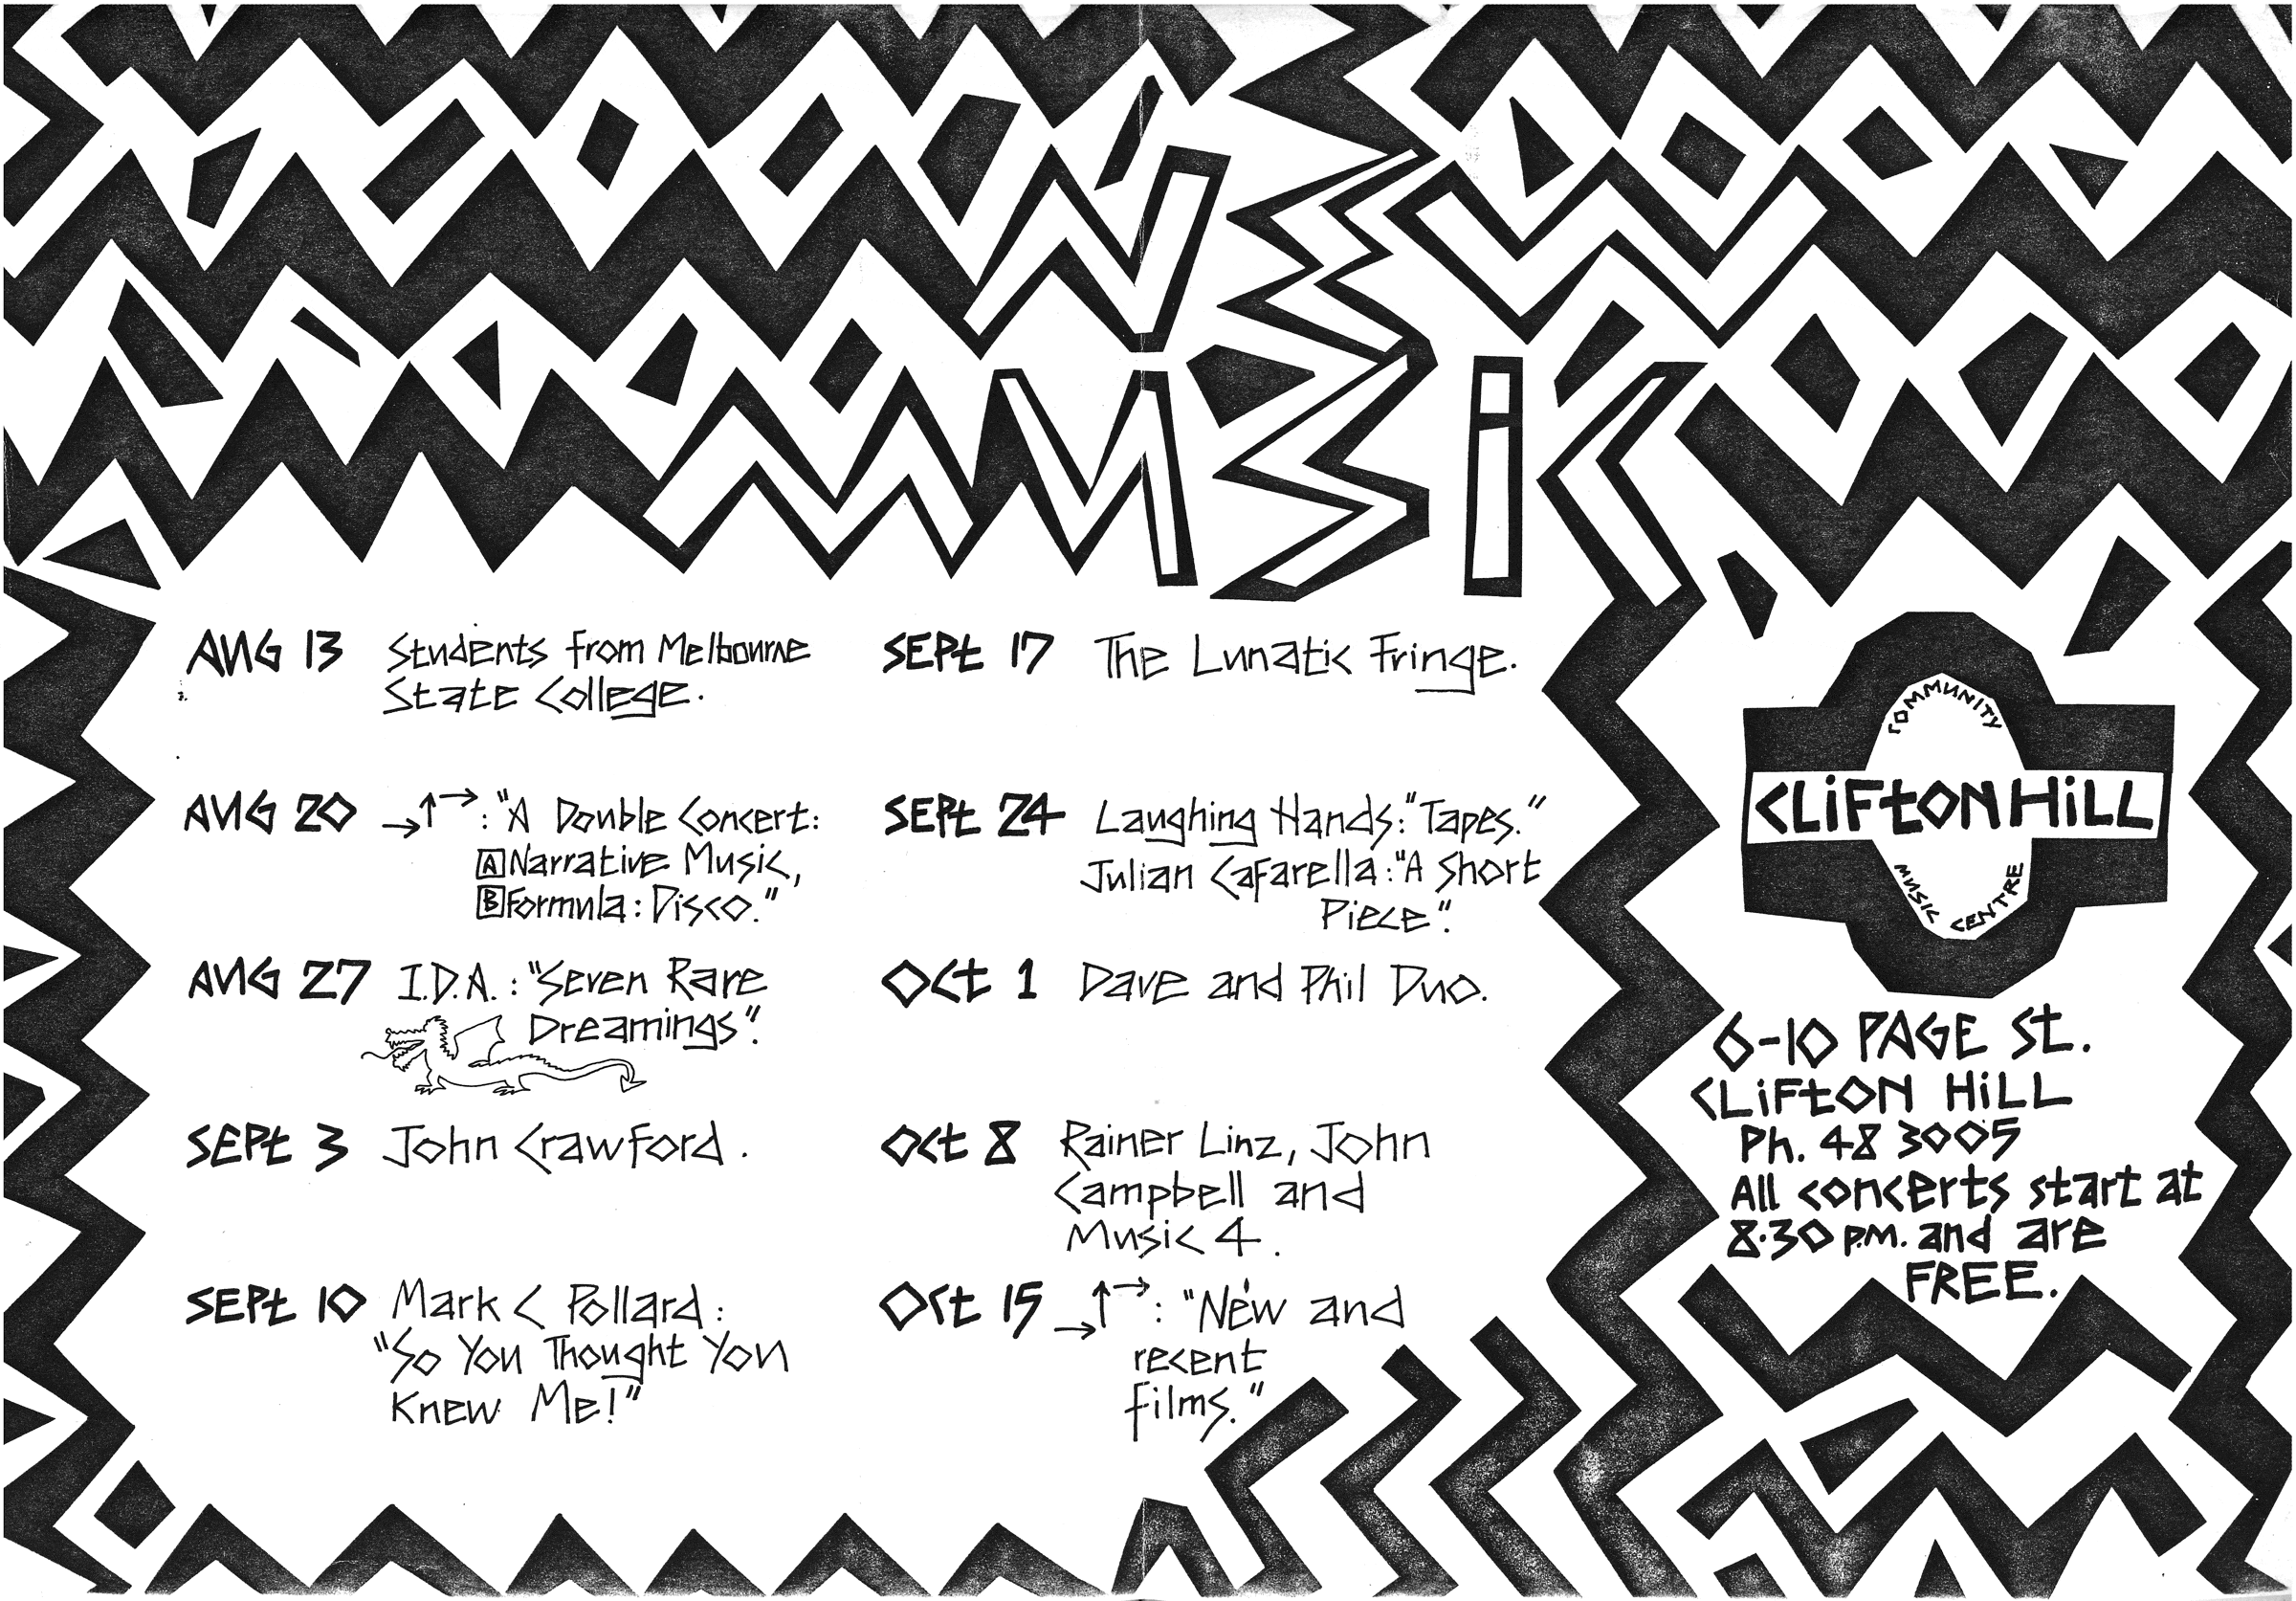 NEW
MUSIC
AUG 13 Students from Melbourne
State College.
AUG 20 →↑→: "A Double Concert:
A Narrative Music,
B Formula: Disco."
AUG 27 I.D.A.: "Seven Rare
Dreamings".
SEPt 3 John Crawford.
SEPt 10 Mark C Pollard:
"So You Thought You
Knew Me!"
SEPt 17 The Lunatic Fringe.
SEPt 24 Laughing Hands: "Tapes."
Julian Cafarella: "A Short
Piece".
Oct 1 Dave and Phil Duo.
Oct 8 Rainer Linz, John
Campbell and
Music 4.
Oct 15 →↑→: "New and
recent
films."
COMMUNITY
CLiFtON HiLL
MUSIC CENTRE
6-10 PAGE St.
CLiFtON HiLL
Ph. 48 3005
All concerts start at
8.30 P.M. and are
FREE.